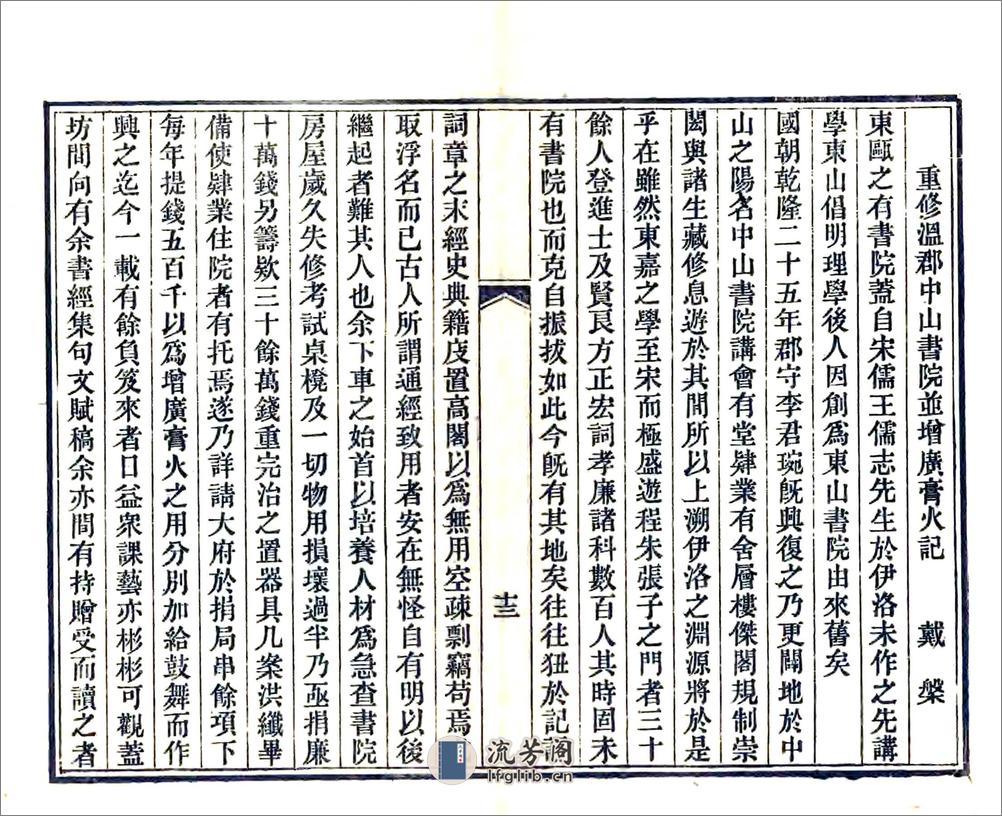 重修溫郡中山書院並增廣膏火記　戴槃
東甌之有書院蓋自宋儒王儒志先生於伊洛未作之先講
學東山倡明理學後人因創爲東山書院由來舊矣
國朝乾隆二十五年郡守李君琬旣興復之乃更闢地於中
山之陽名中山書院講會有堂肄業有舍層樓傑閣規制崇
閎與諸生藏修息遊於其間所以上溯伊洛之淵源將於是
乎在雖然東嘉之學至宋而極盛遊程朱張子之門者三十
餘人登進士及賢良方正宏詞孝廉諸科數百人其時固未
有書院也而克自振拔如此今旣有其地矣往往狃於記
十三
詞章之末經史典籍庋置高閣以爲無用空疎剽竊苟焉
取浮名而已古人所謂通經致用者安在無怪自有明以後
繼起者難其人也余下車之始首以培養人材爲急查書院
房屋歲久失修考試桌櫈及一切物用損壞過半乃亟捐廉
十萬錢另籌欵三十餘萬錢重完治之置器具几案洪纖畢
備使肄業住院者有托焉遂乃詳請大府於捐局串餘項下
每年提錢五百千以爲增廣膏火之用分別加給鼓舞而作
興之迄今一載有餘負笈來者日益衆課藝亦彬彬可觀蓋
坊間向有余書經集句文賦稿余亦間有持贈受而讀之者
流芳閣
lfglib.cn